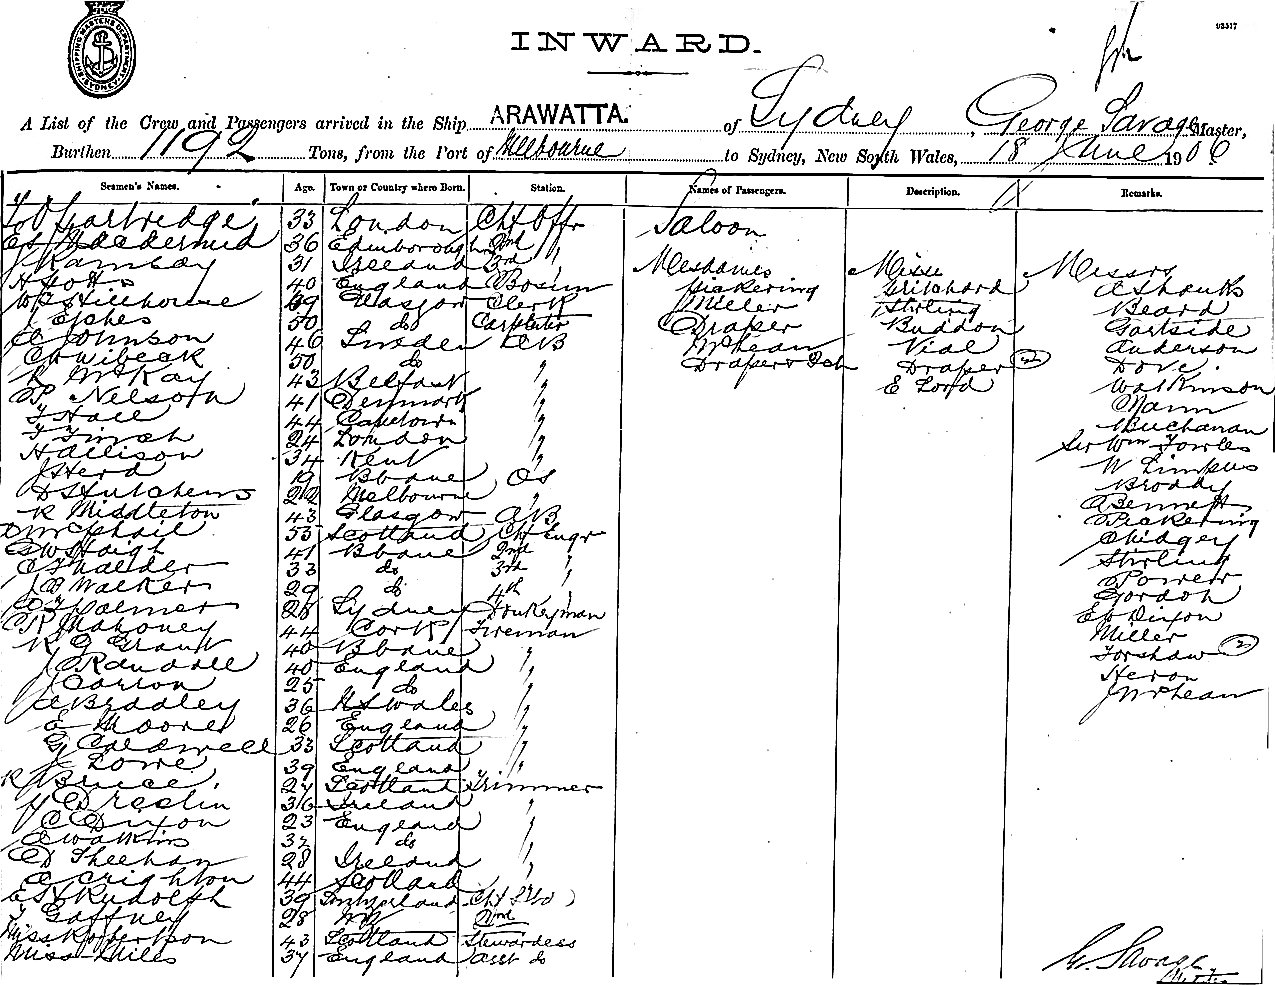 SHIPPING MASTERS DEPARTMENT SYDNEY
92517
INWARD.
A List of the Crew and Passengers arrived in the Ship ARAWATTA. of Sydney, George Savage Master,
Burthen 1192 Tons, from the Port of Melbourne to Sydney, New South Wales, 18 June 1906
Seamen's Names. Age. Town or Country where Born. Station. Names of Passengers. Description. Remarks.
33 London Ch Offr Saloon
36 Edinborough 2nd "
J Ramsay 31 Ireland 3rd " Mesdames Misses Messrs
40 England Bosun Pickering Pritchard A Shanks
Hillhouse 49 Glasgow Clerk Miller Stirling Beard
50 do Carpenter Draper Buddon Gartside
Johnson 46 Sweden AB McPhean Vial Anderson
50 do " Draper Draper (2) Dove
R McKay 43 Belfast " E Lord Watkinson
P Nelson 41 Denmark " Mann
T Hall 44 Capetown " Buchanan
T Finch 24 London " Sir Wm Fowles
H Allison 34 Kent " W Limpus
J Herd 19 Bbane OS Broddy
D Hutchens 22 Melbourne " A Bennett
R Middleton 43 Glasgow AB Pickering
D McPhail 53 Scotland Ch Engr Chidgey
G W Haigh 41 Bbane 2nd " Stirling
33 do 3rd " Power
J B Walker 29 do 4th " Gordon
Palmer 28 Sydney Donkeyman E Dixon
R Mahoney 44 Cork Fireman Miller
R G Grant 40 Bbane " Forshaw (2)
J C Randall 40 England " Heron
J Carson 25 do " J McPhean
A Bradley 36 N S Wales "
E Moore 26 England "
G Caldwell 33 Scotland "
J Lowe 39 England "
R Bruce 27 Scotland Trimmer
H Breslin 36 Ireland "
J C Dixon 23 England "
A Watkins 32 do "
D Sheehan 28 Ireland "
A Crighton 44 Scotland "
E H Rudolph 39 Switzerland Ch Std
T Gaffney 28 2nd
Miss Robertson 43 Scotland Stewardess
Miss Miles 37 England Asst do
G. Savage